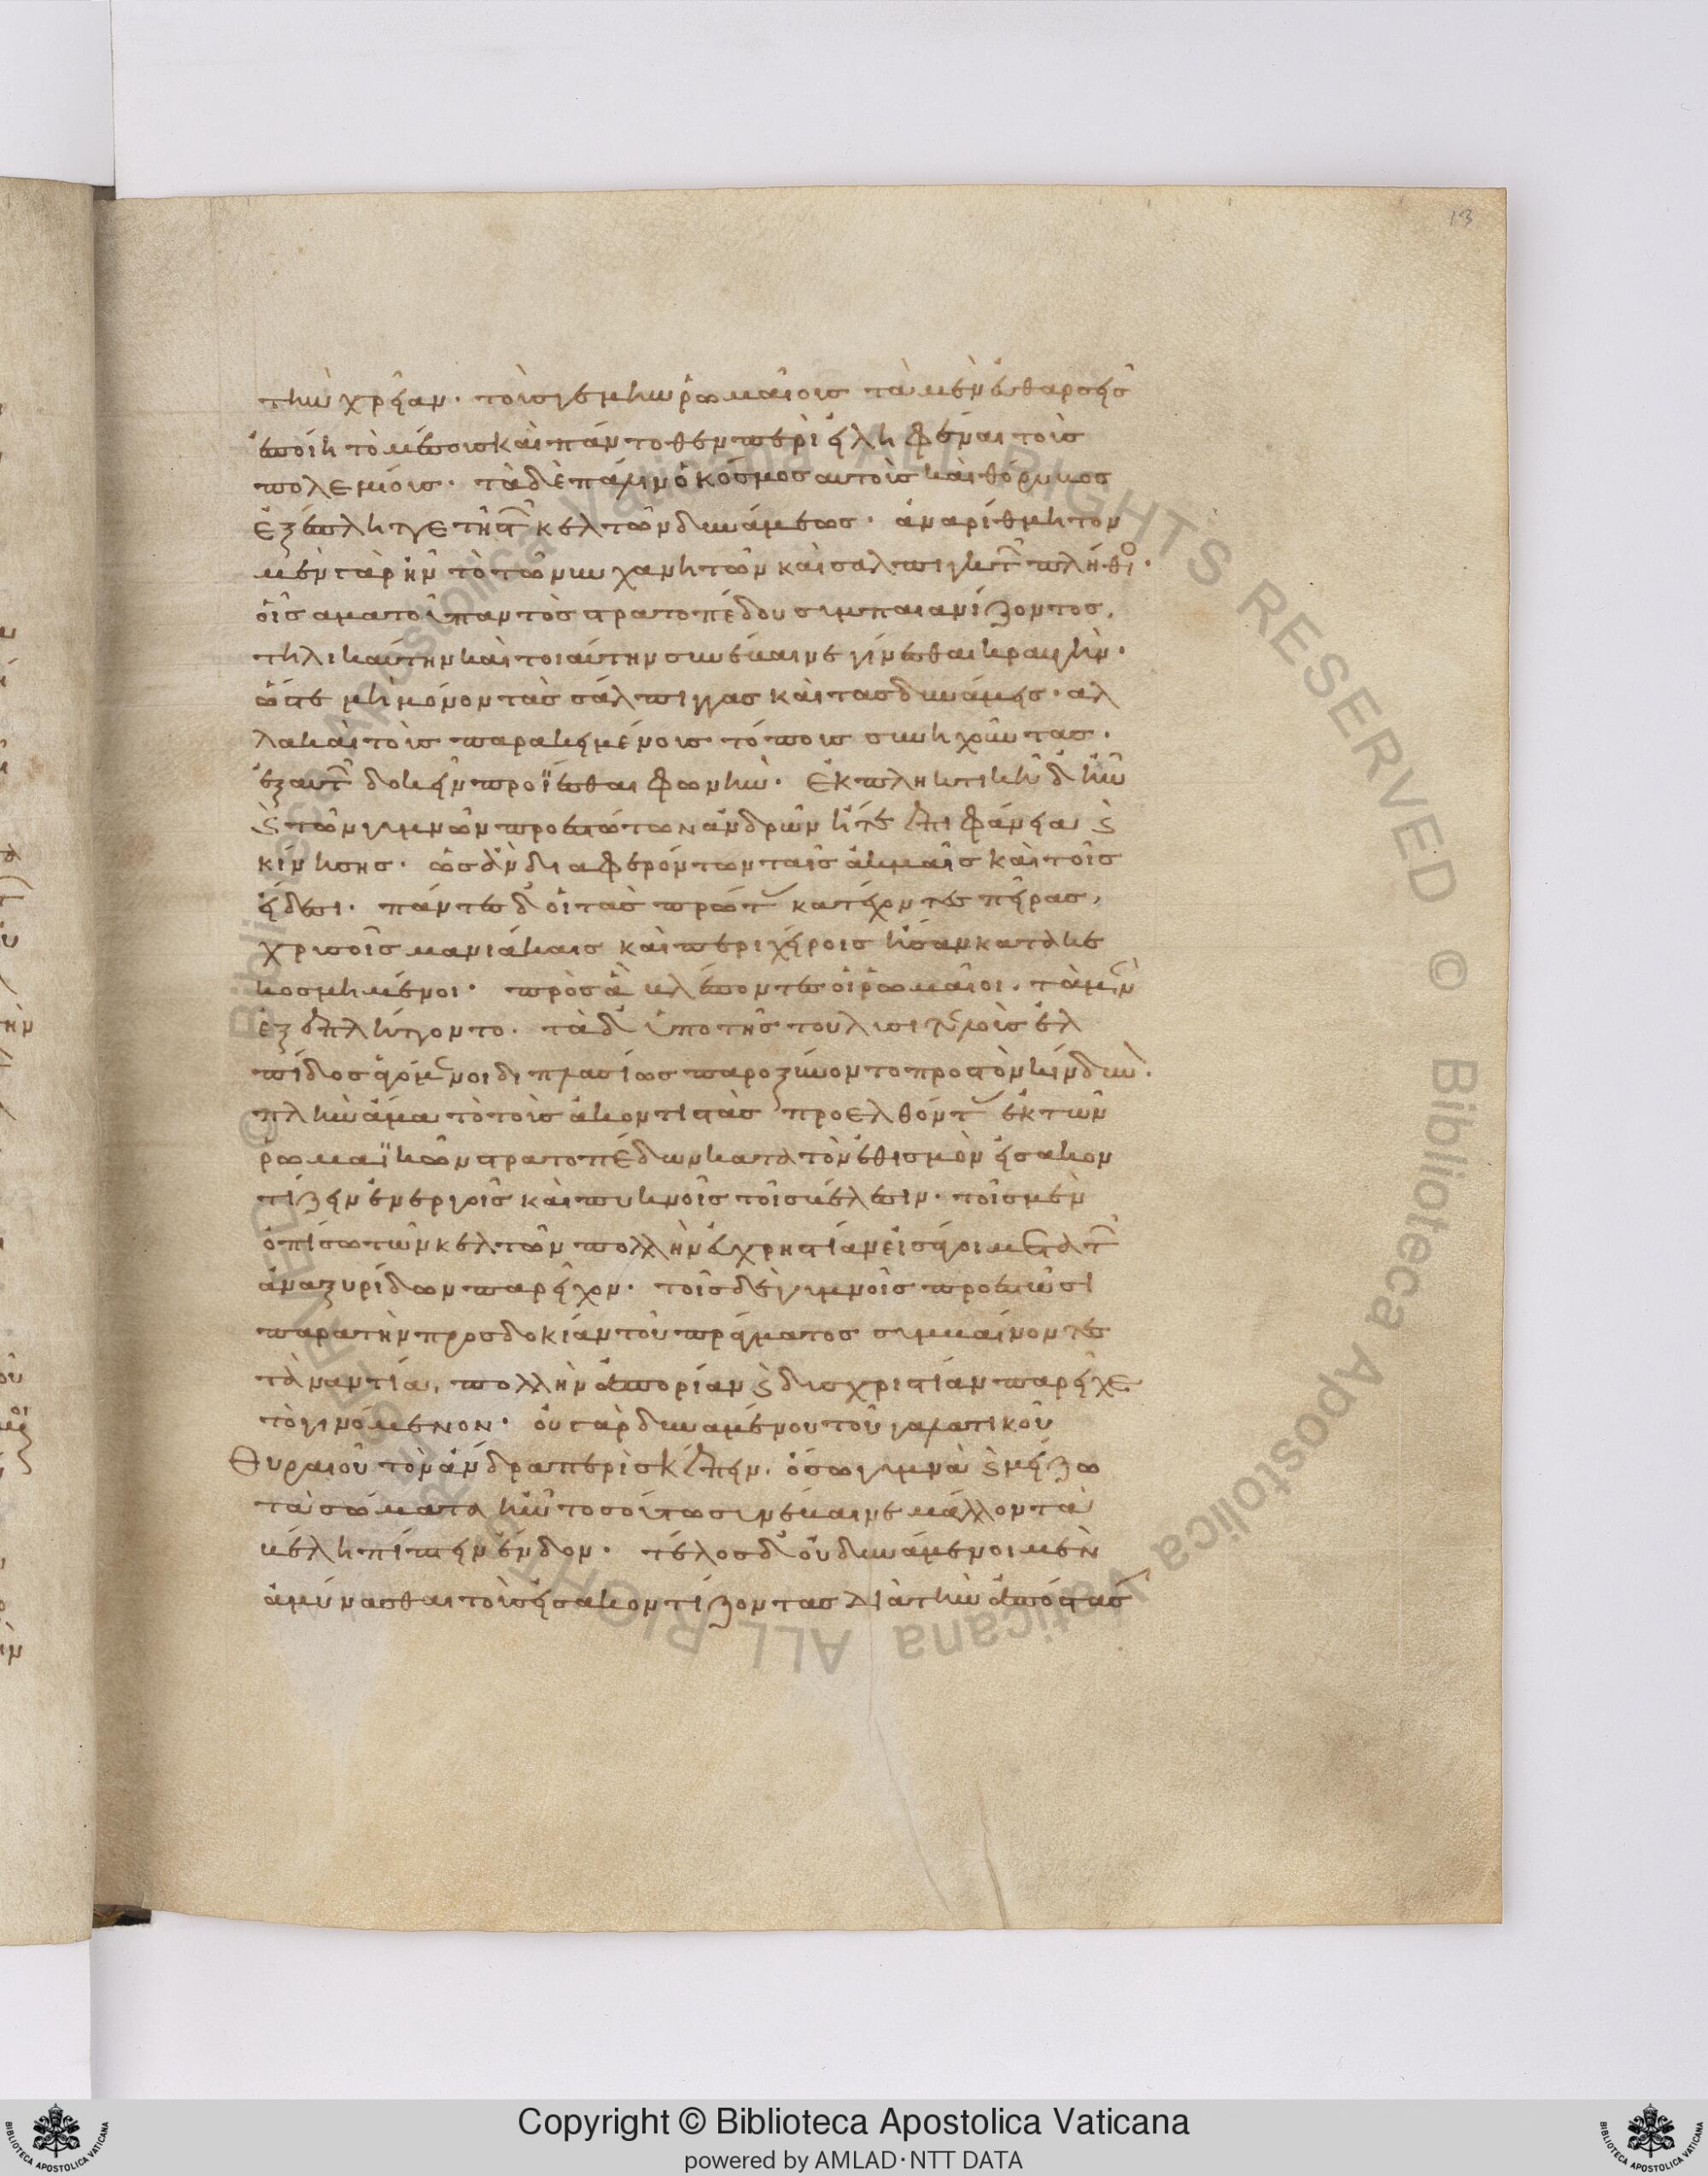 13
τὴν χρείαν. τοῖς γε μὴν ῥωμαίοις τὰ μὲν εὐθαρσεῖς
ἐποίει τὸ μέσοις καὶ πάντοθεν περιειληφέναι τοὺς
πολεμίους. τὰ δὲ πάλιν ὁ κόσμος αὐτοὺς καὶ θόρυβος
ἐξέπληττε τῆς τῶν κελτῶν δυνάμεως. ἀναρίθμητον
μὲν γὰρ ἦν τὸ τῶν βυκανητῶν καὶ σαλπιγκτῶν πλῆθος.
οἷς ἅμα τοῦ παντὸς στρατοπέδου συμπαιανίζοντος,
τηλικαύτην καὶ τοιαύτην συνέβαινε γίνεσθαι κραυγὴν.
ὥστε μὴ μόνον τὰς σάλπιγγας καὶ τὰς δυνάμεις. ἀλ
λὰ καὶ τοὺς παρακειμένους τόπους συνηχοῦντας.
ἐξ αὑτῶν δοκεῖν προΐεσθαι φωνὴν. ἐκπληκτικὴ δ' ἦν
καὶ τῶν γυμνῶν προεστώτων ἀνδρῶν ἥ τε ἐπιφάνεια καὶ
κίνησις. ὡς ἂν διαφερόντων ταῖς ἀκμαῖς καὶ τοῖς
εἴδεσι. πάντες δ' οἱ τὰς πρώτας κατέχοντες σπείρας,
χρυσοῖς μανιάκαις καὶ περιχείροις ἦσαν κατακε
κοσμημένοι. πρὸς ἃ βλέποντες οἱ ῥωμαῖοι. τὰ μὲν
ἐξεπλήττοντο. τὰ δ' ὑπὸ τῆς τοῦ λυσιτελοῦς ἐλ
πίδος ἀγόμενοι διπλασίως παρωξύνοντο πρὸς τὸν κίνδυνον.
πλὴν ἅμα τὸ τοὺς ἀκοντιστὰς προελθόντας ἐκ τῶν
ῥωμαϊκῶν στρατοπέδων κατὰ τὸν ἐθισμὸν εἰσακον
τίζειν ἐνεργοῖς καὶ πυκνοῖς τοῖς βέλεσιν. τοῖς μὲν
ὀπίσω τῶν κελτῶν πολλὴν εὐχρηστίαν οἱ σάγοι μετὰ τῶν
ἀναξυρίδων παρεῖχον. τοῖς δὲ γυμνοῖς προεστῶσι
παρὰ τὴν προσδοκίαν τοῦ πράγματος συμβαίνοντες
τἀναντία, πολλὴν ἀπορίαν καὶ δυσχρηστίαν παρεῖχε
τὸ γινόμενον. οὐ γὰρ δυναμένου τοῦ γαλατικοῦ
θυραιοῦ τὸν ἄνδρα περισκέπειν. ὅσῳ γυμνὰ καὶ μείζω
τὰ σώματα ἦν τοσούτω συνέβαινε μᾶλλον τὰ
βέλη πίπτειν ἔνδον. τέλος δ' οὐ δυνάμενοι μὲν
ἀμύνασθαι τοὺς εἰσακοντίζοντας διὰ τὴν ἀπόστασ